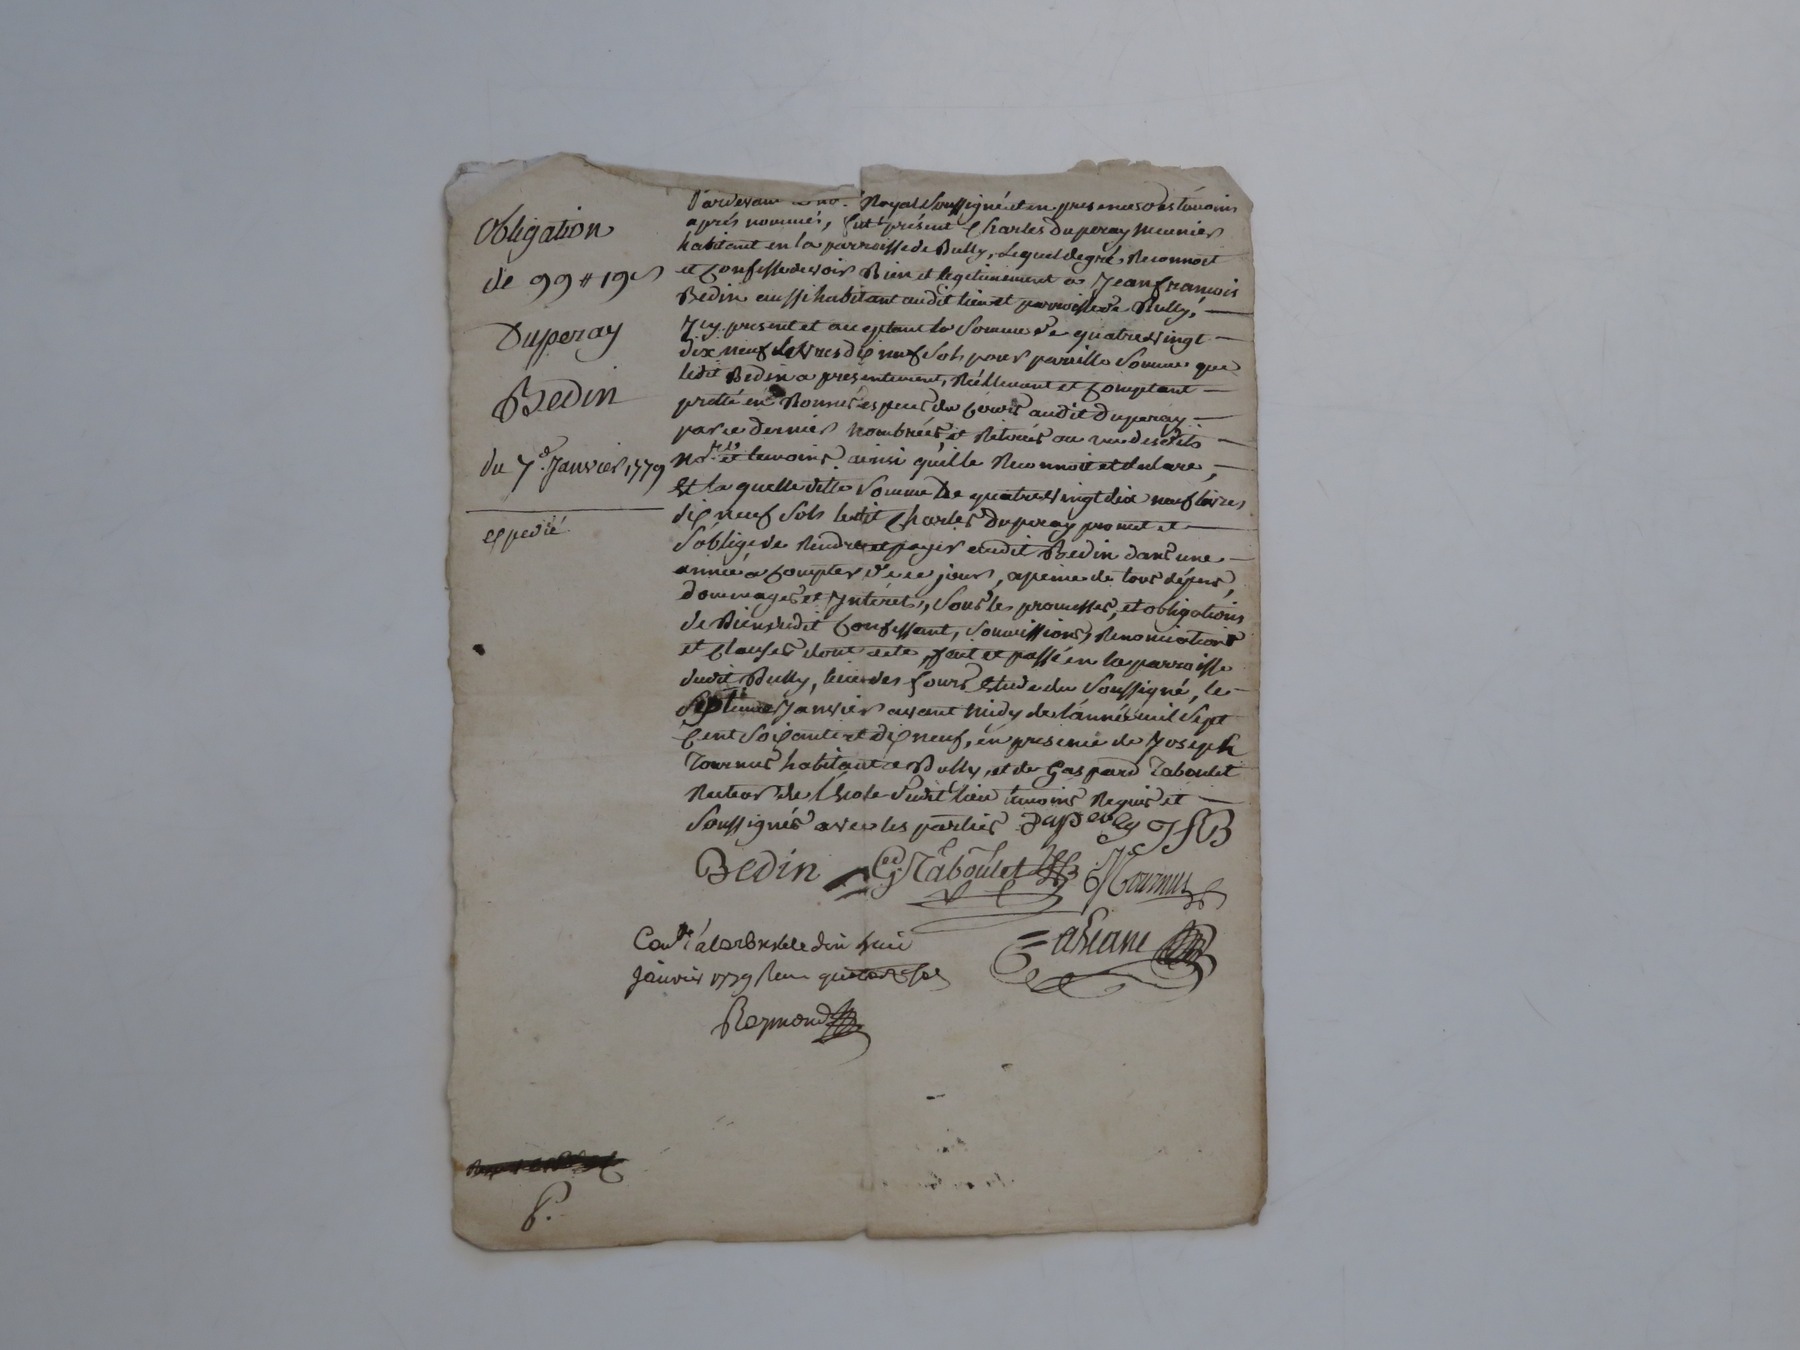 Obligation
de 99 # 19 s
Duperay
Bedin
du 7e. Janvier 1779
expedié
Pardevant le no.re Royal soussigné et en presences des témoins
aprés nommés, fut présent Charles Duperay meunier
habitant en la parroisse de Bully, Lequel de gré Reconnoit
et Confesse devoir Bien et legitimement a Jean francois
Bedin aussi habitant audit lieu et parroisse de Bully,
Icy present et acceptant la Somme de quatre vingt
dix neuf Livres dix neuf Sols pour pareille Somme que
ledit Bedin a présentement, Réellement et Comptant
pretté en Bonnes especes de Cours audit Duperay
par ce dernier nombrées, et Retirées au vu desdits
No.re et temoins ainsi qu'il le Reconnoit et declare,
Et la quelle ditte Somme De quatre vingt dix neuf livres
dix neuf Sols ledit Charles Duperay promet et
s'oblige de Rendre et payer audit Bedin dans une
année a Compter de ce jour, a peine de tous dépens,
dommages et Interets, sous les promesses, et obligations
de Biens dudit Confessant, Soumissions, Renonciations
et Clauses dont acte, fait et passé en la parroisse
dudit Bully, lieu des fours Etude du Soussigné, le
Septieme Janvier avant midy de l'année mil Sept
Cent Soixante et dix neuf, en presence de Joseph
Tournus habitant a Bully, et de Gaspard Taboulet
Recteur de l'Ecole dudit lieu temoins Requis et
Soussignés avec les parties Duperay JFB
Bedin G Taboulet J Tournus
Con.lé a larbresle le dix huit
Janvier 1779 Reçu quatorze sols
Reymond